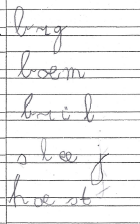 brug
boem
bril
slee j
hoest